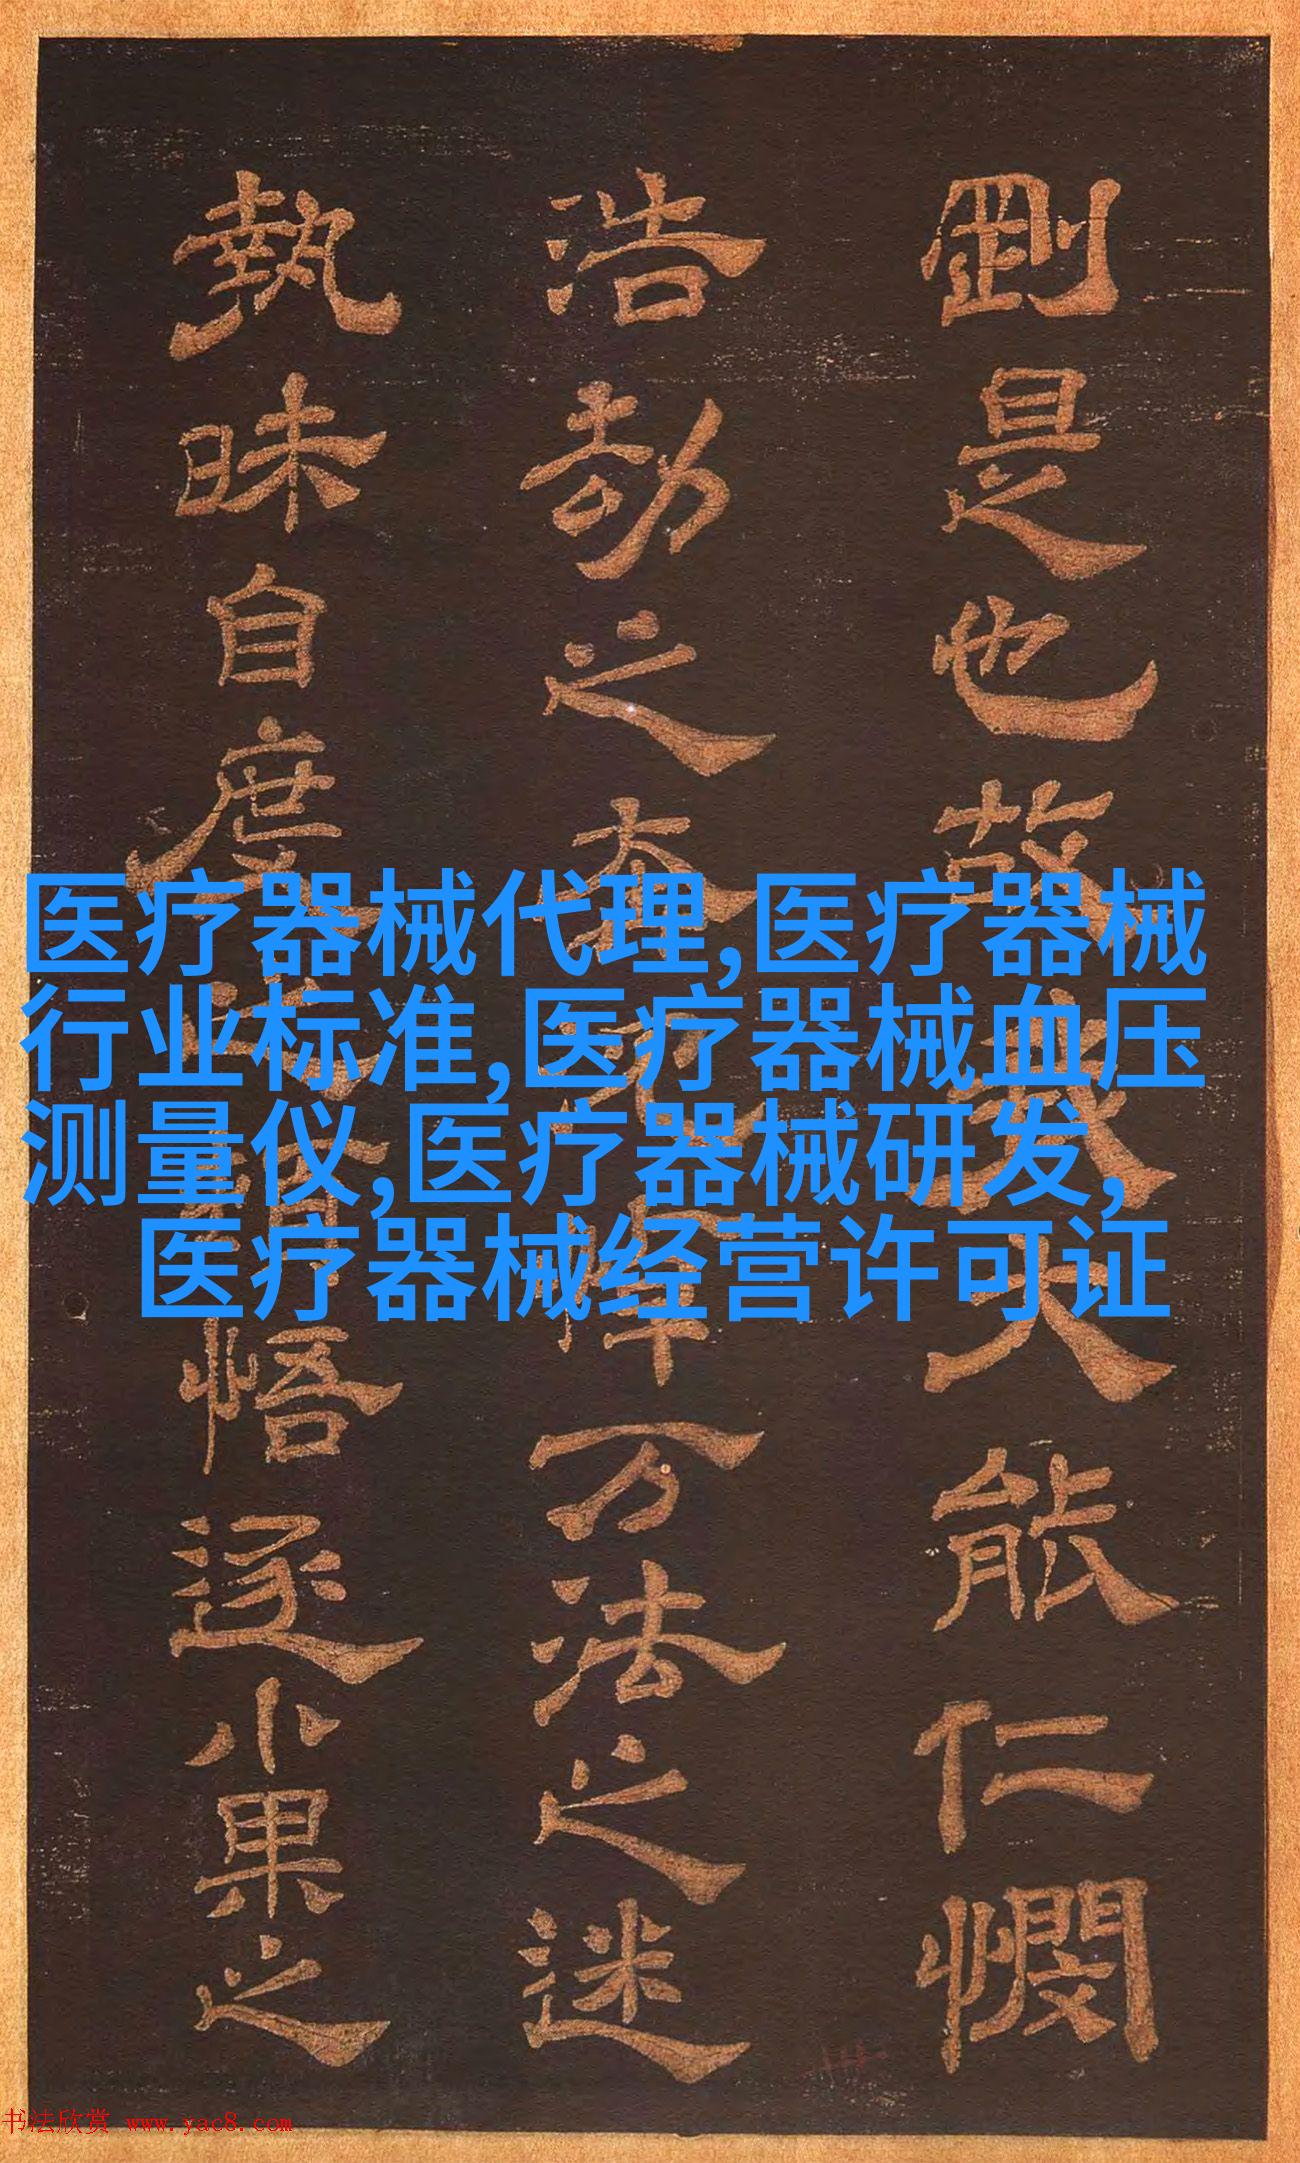 剛是也故義大能仁憫
浩劫之
万法之迷
執昧自度
悟逐小果之
医疗器械代理,医疗器械
行业标准,医疗器械血压
测量仪,医疗器械研发,
医疗器械经营许可证
书法欣赏 www.yac8.com